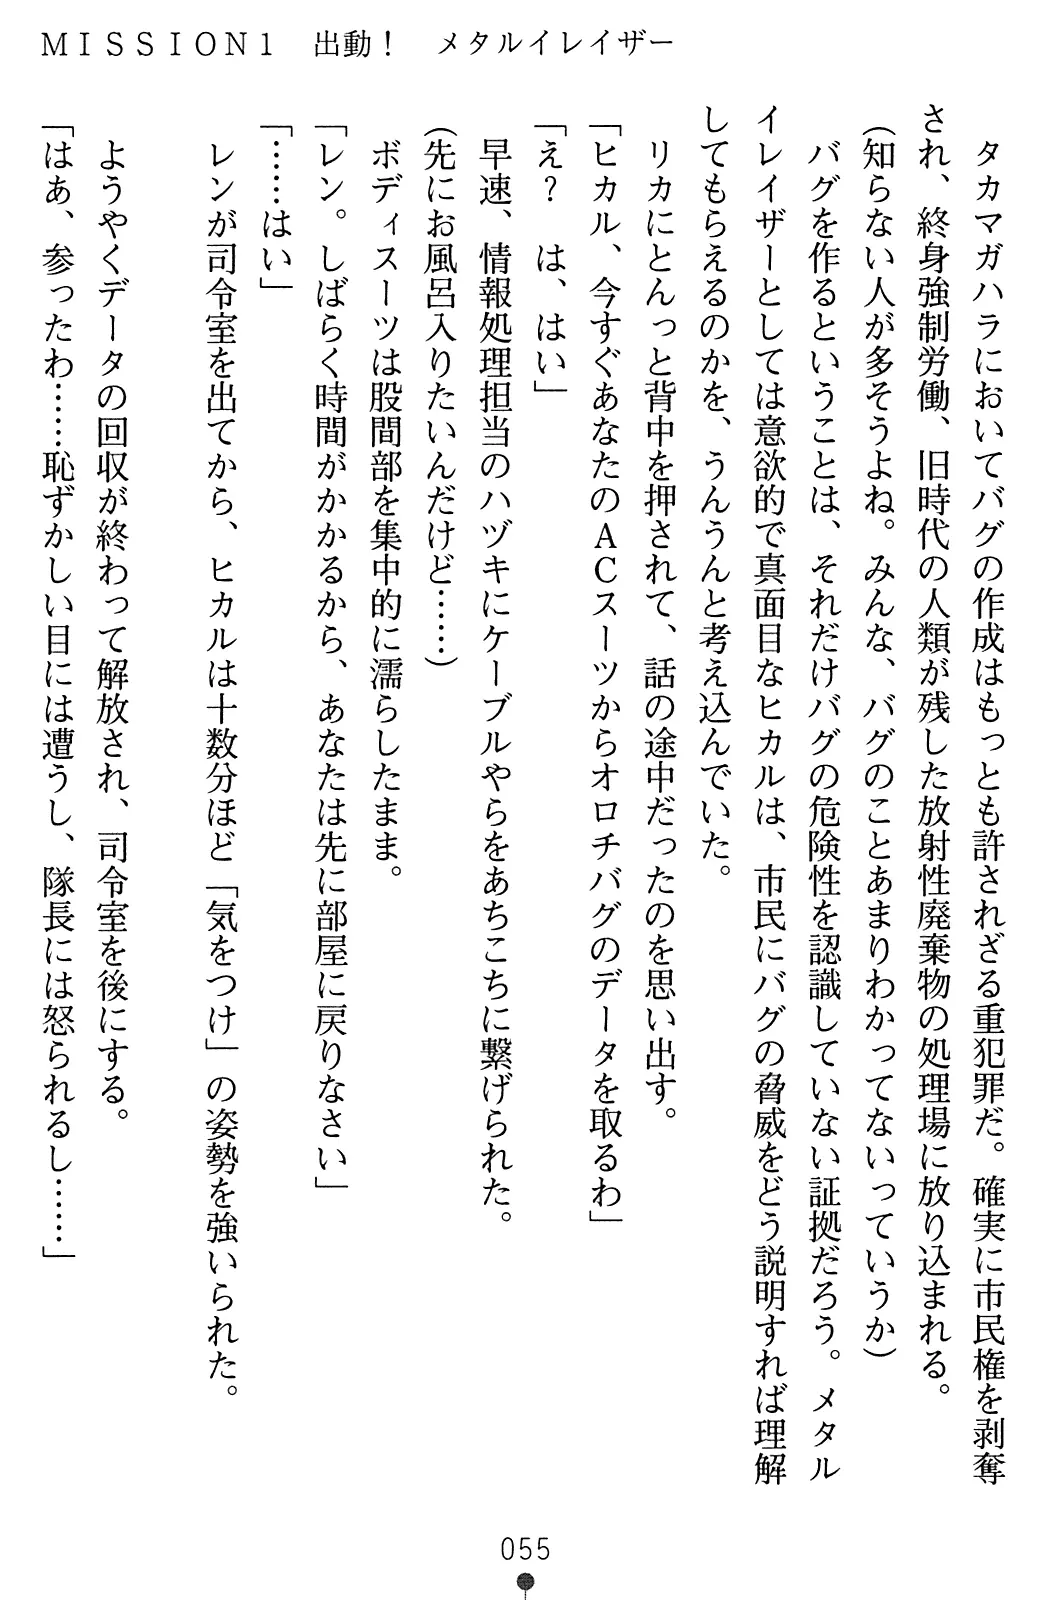 MISSION1　出動！　メタルイレイザー
　タカマガハラにおいてバグの作成はもっとも許されざる重犯罪だ。確実に市民権を剥奪
され、終身強制労働、旧時代の人類が残した放射性廃棄物の処理場に放り込まれる。
（知らない人が多そうよね。みんな、バグのことあまりわかってないっていうか）
　バグを作るということは、それだけバグの危険性を認識していない証拠だろう。メタル
イレイザーとしては意欲的で真面目なヒカルは、市民にバグの脅威をどう説明すれば理解
してもらえるのかを、うんうんと考え込んでいた。
　リカにとんっと背中を押されて、話の途中だったのを思い出す。
「ヒカル、今すぐあなたのＡＣスーツからオロチバグのデータを取るわ」
「え？　は、はい」
　早速、情報処理担当のハヅキにケーブルやらをあちこちに繋げられた。
（先にお風呂入りたいんだけど……）
　ボディスーツは股間部を集中的に濡らしたまま。
「レン。しばらく時間がかかるから、あなたは先に部屋に戻りなさい」
「……はい」
　レンが司令室を出てから、ヒカルは十数分ほど「気をつけ」の姿勢を強いられた。
　ようやくデータの回収が終わって解放され、司令室を後にする。
「はあ、参ったわ……恥ずかしい目には遭うし、隊長には怒られるし……」
055